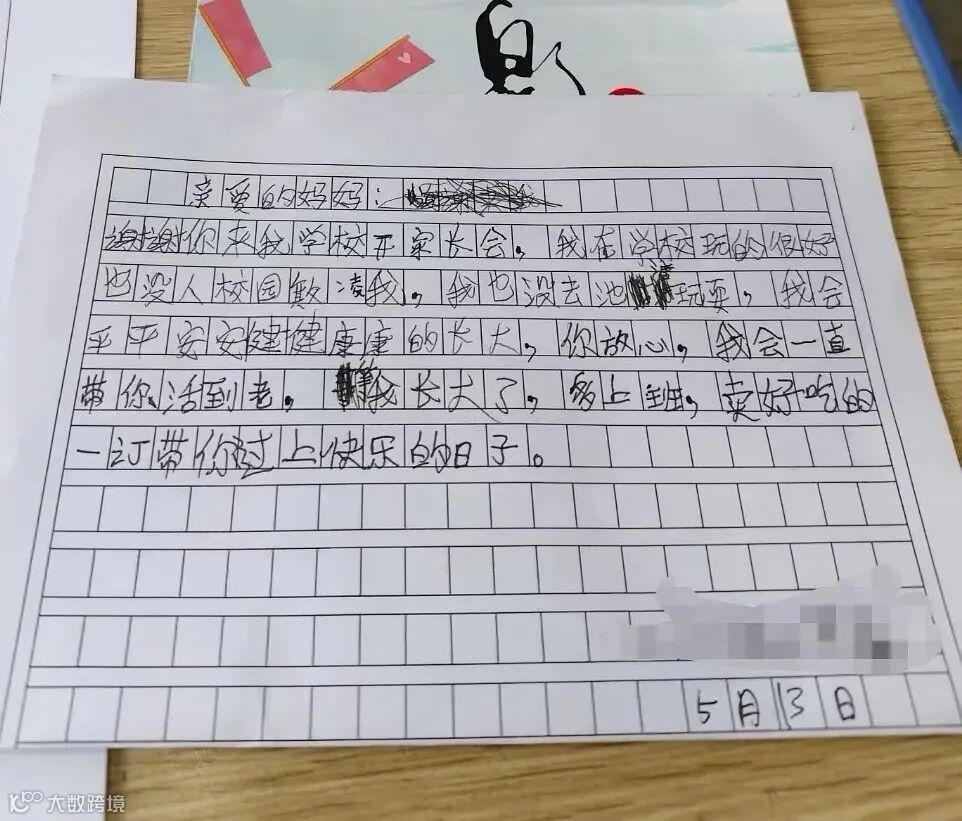 亲爱的妈妈：
谢谢你来我学校开家长会，我在学校玩的很好
也没人校园欺凌我，我也没去池塘玩耍，我会
平平安安健健康康的长大，你放心，我会一直
带你活到老，我长大了，多上班，卖好吃的
一订带你过上快乐的日子。
5月13日
大数跨境